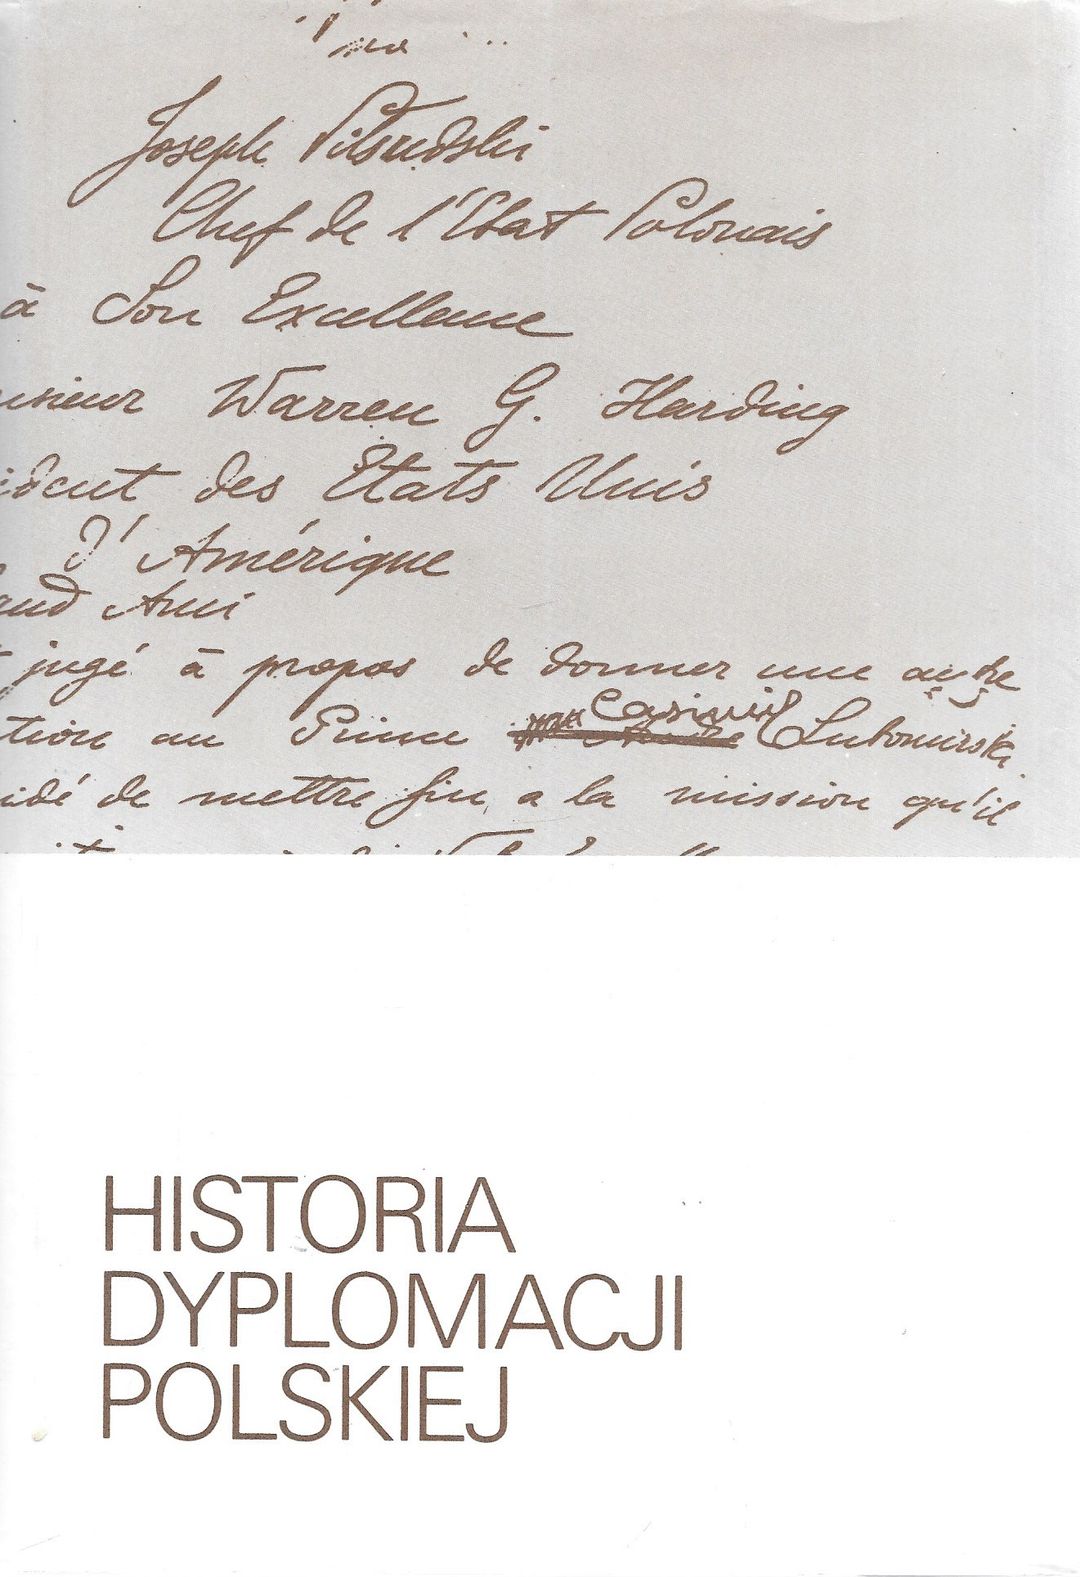 Joseph Pilsudski
Chef de l'Etat Polonais
à Son Excellence
nsieur Warren G. Harding
ident des Etats Unis
d'Amérique
and Ami
t jugé à propos de donner une autre
tion au Prince Casimir Lubomirski
idé de mettre fin, a la mission qu'il
HISTORIA
DYPLOMACJI
POLSKIEJ